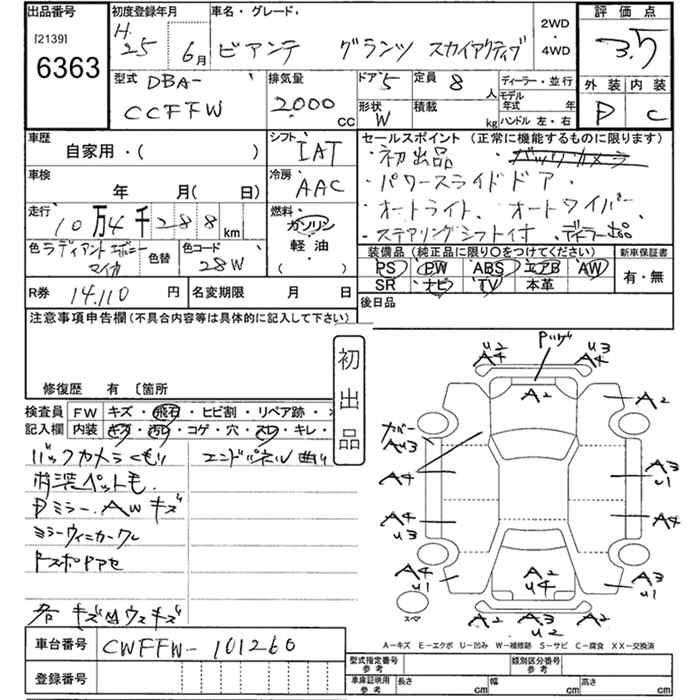 出品番号 初度登録年月 車名・グレード 2WD・4WD 評価点
[2139] H. 25年 6月 ビアンテ グランツ スカイアクティブ 3.5
6363
型式 DBA- CCFFW 排気量 2.000 CC ドア 5 定員 8人 ディーラー・並行 外装 内装
形状 W 積載 kg モデル年式 年 ハンドル 左・右 D C
車歴 自家用・( ) シフト IAT セールスポイント (正常に機能するものに限ります)
・初出品 ・バックカメラ
車検 年 月( 日) 冷房 AAC ・パワースライドドア・
走行 10万4千288km 燃料 ガソリン 軽油 ( ) ・オートライト、オートワイパー
・ステアリングシフト付 ディーラー出品
色 ラディアントエボニーマイカ 色替 色コード 28W
装備品 (純正品に限り○をつけてください) 新車保証書
PS PW ABS エアB AW 有・無
SR ナビ TV 本革
R券 14.110円 名変期限 月 日 後日品
注意事項申告欄(不具合内容等は具体的に記入して下さい)
初出品
修復歴 有 〔箇所
検査員記入欄 FW キズ・飛石・ヒビ割・リペア跡・
内装 キズ・汚れ・コゲ・穴・スレ・キレ・
バックカメラくもり エンドパネル曲り
内装ペット毛.
Dミラー. AWキズ
ミラーウィンカーワレ
各キズ凹ウスキズ
Pハゲ
U2 A4 U3 A4
A2 A2
カバー AU3
A4 A3 U1
A4 U3 A4
A4 U1 A2 U4 A3 U1
A2 A3 U2 A2
スペア
A-キズ E-エクボ U-凹み W-補修跡 S-サビ C-腐食 XX-交換済
車台番号 CWFFW-101260
登録番号
型式指定番号 参考 類別区分番号 参考
車庫証明用 参考 長さ cm 幅 cm 高さ cm